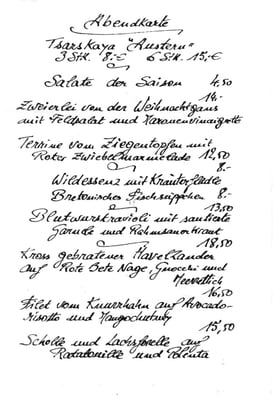 Abendkarte
Tsarskaya "Austern"
3 Stk. 8,-€ 6 Stk. 15,-€
Salate der Saison 4,50
14,-
Zweierlei von der Weihnachtsgans
mit Feldsalat und Maronenvinaigrette
Terrine vom Ziegentopfen mit
Roter Zwiebelmarmelade 12,50
8.-
Wildessenz mit Kräuterflädle
Bretonisches Fischsüppchen 8.-
13,50
Blutwurstravioli mit sautierte
Garnele und Rahmsauerkraut
18,50
Kross gebratener Havelzander
auf Rote Bete Nage, Gnocchi und
Meerrettich
16,50
Filet vom Knurrhahn auf Avocado-
risotto und Mangochutney
15,50
Scholle und Lachsforelle auf
Ratatouille und Polenta